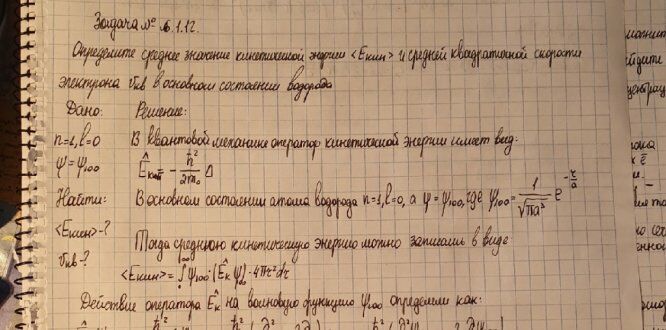 Задача № 6.1.12.
Определите среднее значение кинетической энергии <Eкин> и средней квадратичной скорости
электрона vкв в основном состоянии водорода
Дано: Решение:
n=1, l=0 В квантовой механике оператор кинетической энергии имеет вид:
ψ=ψ₁₀₀ Êкин = - ħ²/2m₀ Δ
Найти: В основном состоянии атома водорода n=1, l=0, а ψ=ψ₁₀₀, где ψ₁₀₀ = 1/√πa³ e^(-r/a)
<Eкин>-?
vкв-? Тогда среднюю кинетическую энергию можно записать в виде
<Eкин> = ∫₀^∞ ψ₁₀₀·(Êк ψ₁₀₀)·4πr²dr
Действие оператора Êк на волновую функцию ψ₁₀₀ определяем как: